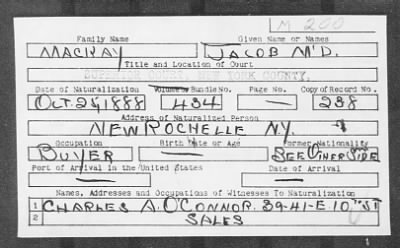 M 200
Family Name Given Name or Names
MACKAY JACOB M'D.
Title and Location of Court
SUPERIOR COURT, NEW YORK COUNTY.
Date of Naturalization Volume or Bundle No. Page No. Copy of Record No.
OCT. 29, 1888 434 — 238
Address of Naturalized Person
NEW ROCHELLE N.Y.
Occupation Birth Date or Age Former Nationality
BUYER — SEE OTHER SIDE
Port of Arrival in the United States Date of Arrival
— —
Names, Addresses and Occupations of Witnesses To Naturalization
1 CHARLES A. O'CONNOR. 39-41-E. 10TH ST
2 SALES